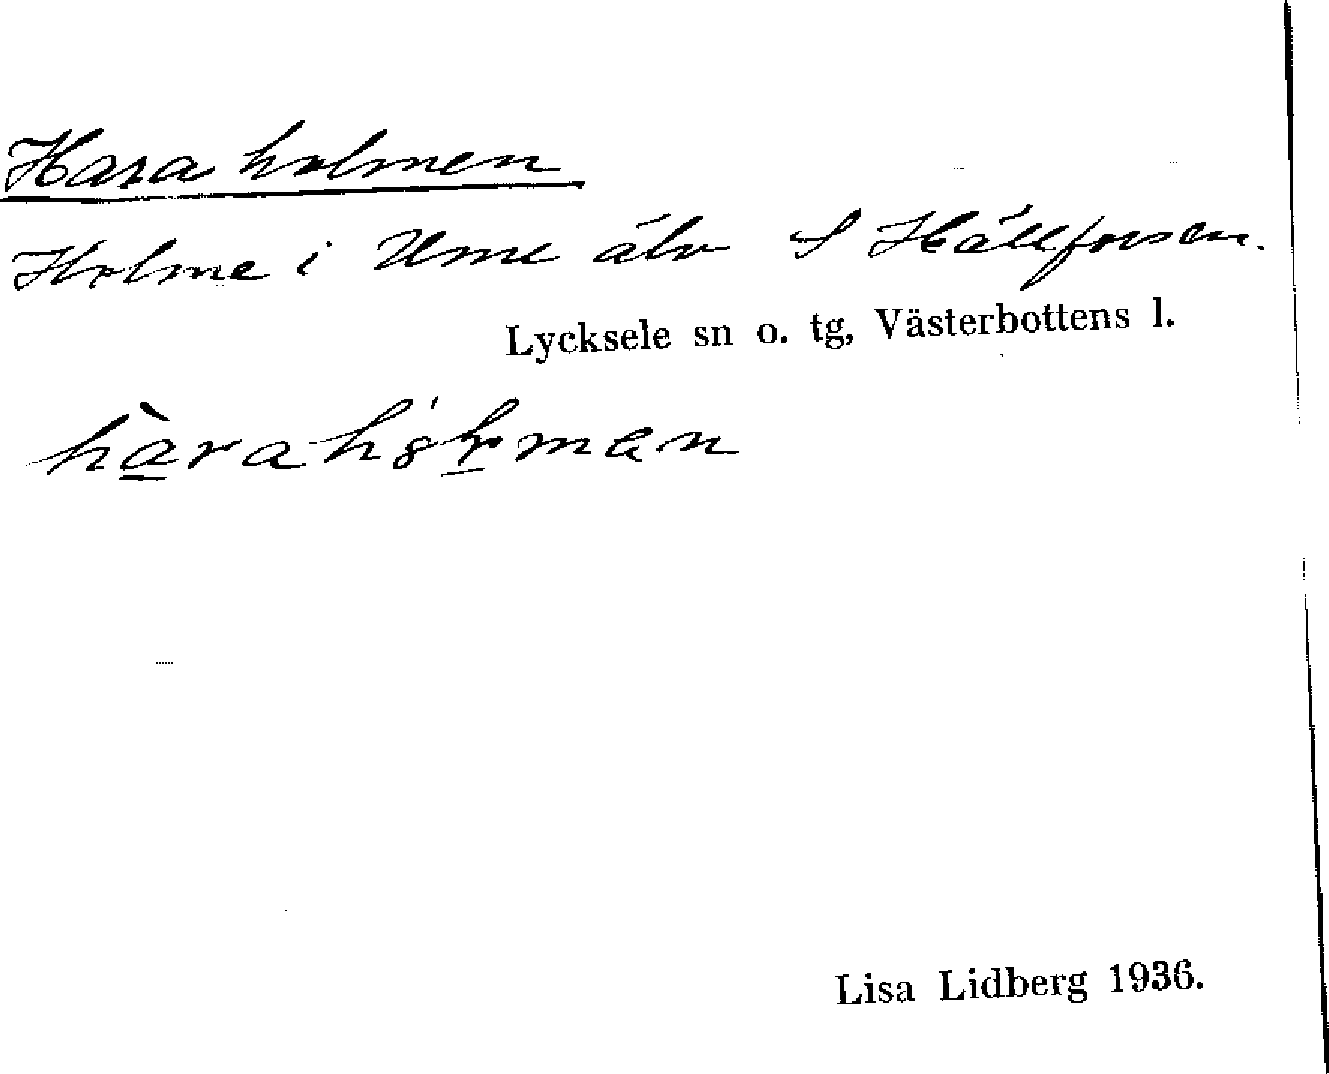 Haraholmen
Holme i Ume älv S Hällforsen.
Lycksele sn o. tg, Västerbottens l.
Lisa Lidberg 1936.